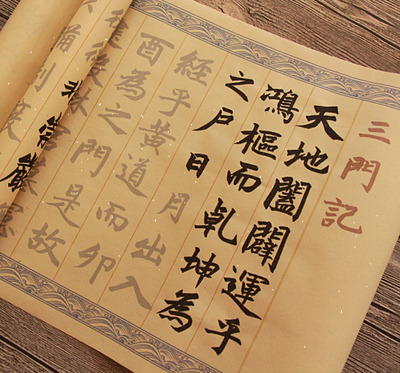 三門記
天地闔闢運乎
鴻樞而乾坤為
之戶日月出入
經乎黃道而卯
酉為之門是故